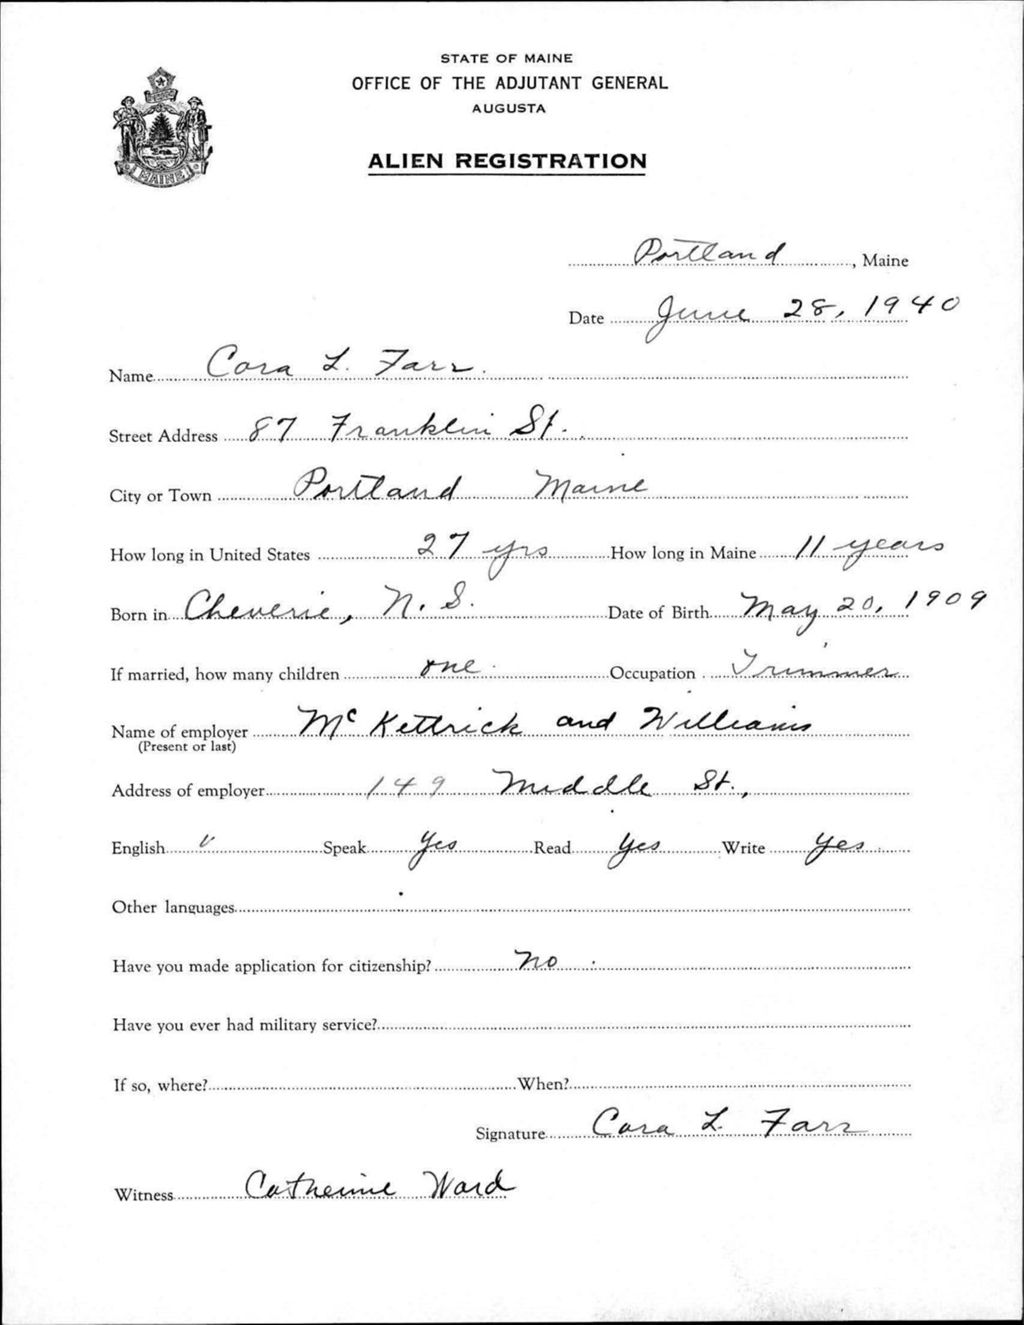 STATE OF MAINE
OFFICE OF THE ADJUTANT GENERAL
AUGUSTA
MAINE
ALIEN REGISTRATION
Portland, Maine
Date June 28, 1940
Name Cora L. Farr.
Street Address 87 Franklin St.
City or Town Portland Maine
How long in United States 27 yrs How long in Maine 11 years
Born in Cheverie, N. S. Date of Birth May 20, 1909
If married, how many children one Occupation Trimmer
Name of employer McKettrick and Williams
(Present or last)
Address of employer 149 Middle St.,
English v Speak Yes Read Yes Write Yes
Other languages
Have you made application for citizenship? No
Have you ever had military service?
If so, where? When?
Signature Cora L Farr
Witness Catherine Ward